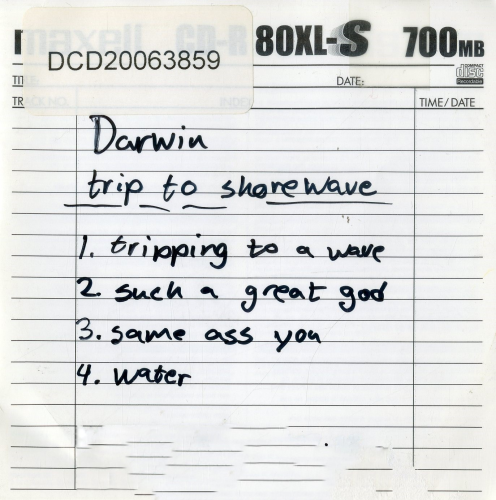 maxell CD-R 80XL-S 700MB
DCD20063859
TITLE: DATE:
COMPACT disc Recordable
TRACK NO. INDEX TIME/DATE
Darwin
trip to shorewave
1. tripping to a wave
2. such a great god
3. same ass you
4. water